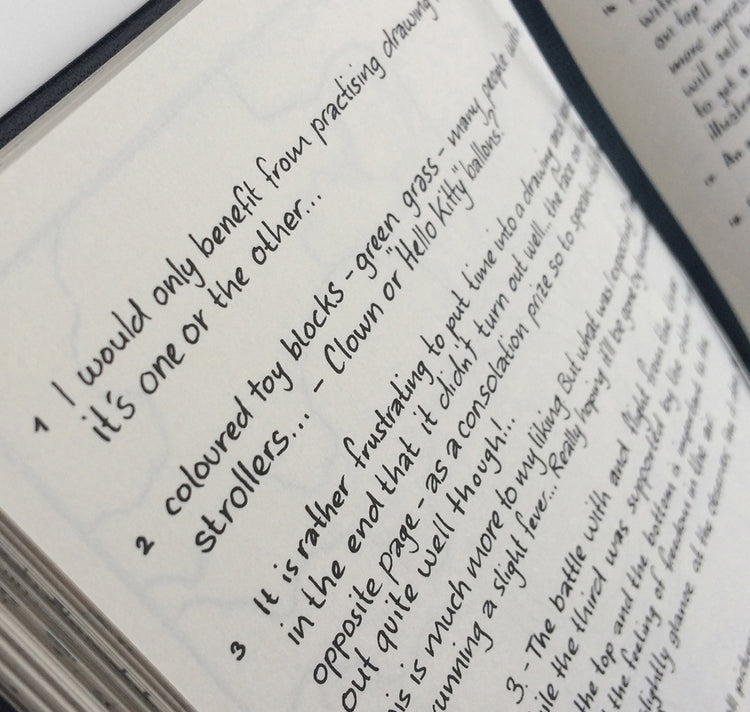 1 I would only benefit from practising drawing
it's one or the other...
2 coloured toy blocks - green grass - many people with
strollers... - Clown or "Hello Kitty" ballons?
3 It is rather frustrating to put time into a drawing
in the end that it didn't turn out well... the face on
opposite page - as a consolation prize so to speak
out quite well though!..
is is much more to my liking But what was expected
running a slight fever... Really hoping it'll be gone by
3. - The battle with and light from the
ile the third was supported by the
the top and the bottom is important
the feeling of freedom in the air
lightly glance at the
with
on top
more impre
will sell
to get a
illustra
An